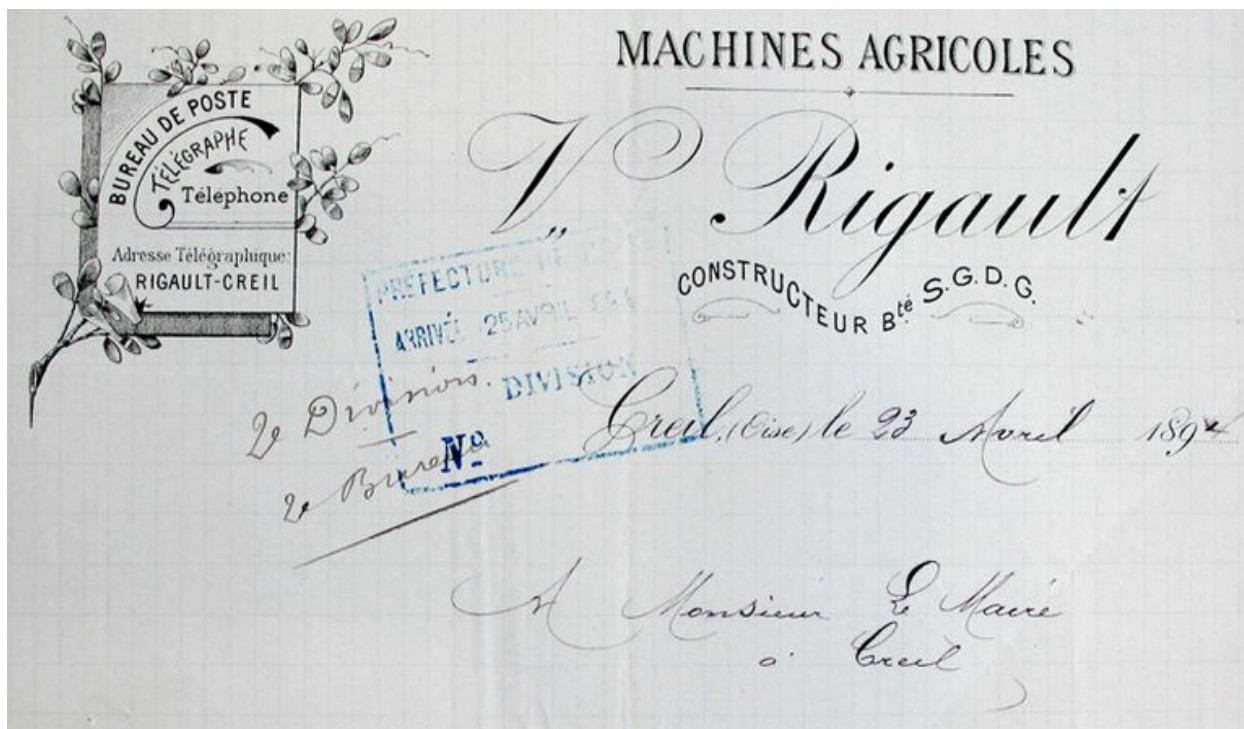 BUREAU DE POSTE
TÉLÉGRAPHE
Téléphone
Adresse Télégraphique:
RIGAULT-CREIL
MACHINES AGRICOLES
V. Rigault
CONSTRUCTEUR Bté S.G.D.G.
PRÉFECTURE DE
ARRIVÉE 25 AVRIL
DIVISION
No
2e Division.
2e Bureau
Creil, (Oise) le 23 Avril 1894
A Monsieur Le Maire
à Creil